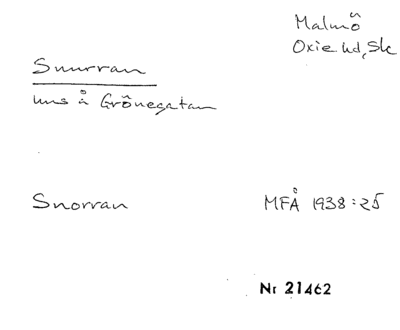 Malmö
Oxie hd, Sk
Snurran
hus å Grönegatan
Snorran
MFÅ 1938:25
Nr 21462